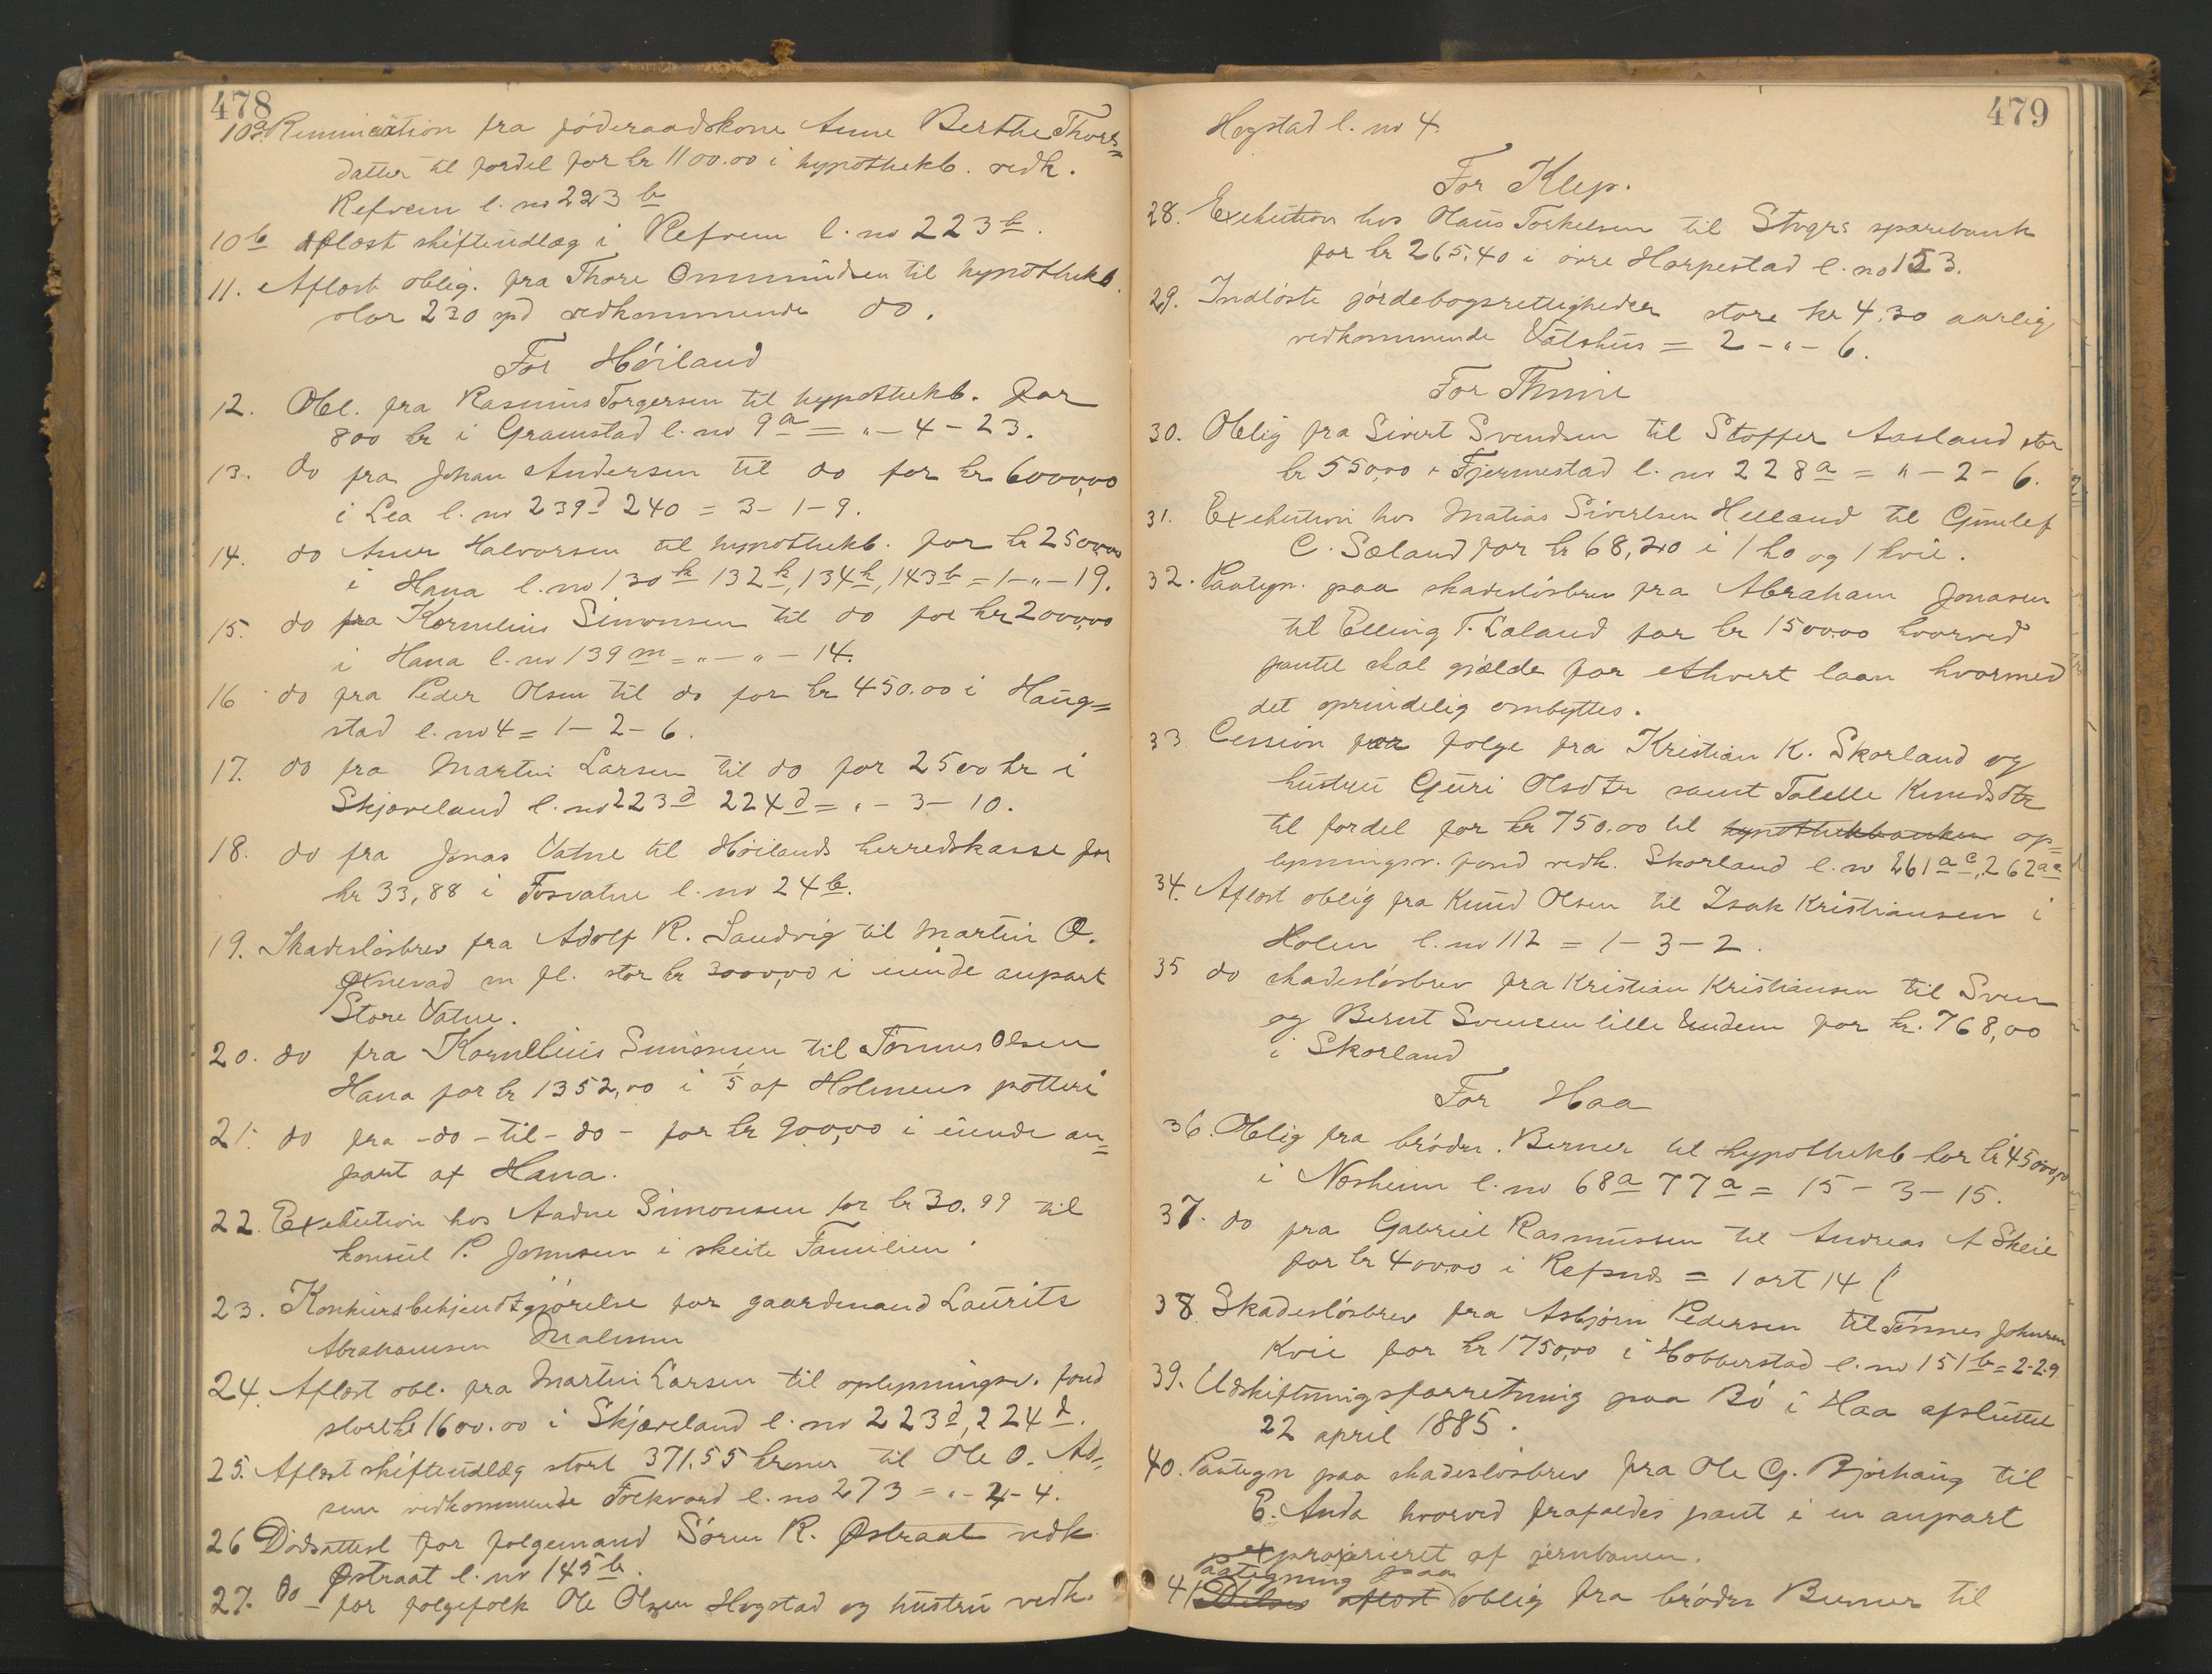 478
10a Renunciation fra föderaadskone Anne Berthe Thors=
datter til fordel for kr 1100.00 i hypothekb. vedk.
Refvem l. no 223 b
10b Aflöst skifteudlæg i Refvem l. no 223 b.
11. Aflöst oblig. fra Thore Ommundsen til hypothekb.
stor 230 spd vedkommende do.
For Höiland
12. Obl. fra Rasmus Torgersen til hypothekb. for
800 kr i Gramstad l. no 9a = „ - 4 - 23.
13. do fra Johan Andersen til do for kr 6000,00
i Lea l. no 239d 240 = 3 - 1 - 9.
14. do Aner Halvorsen til hypothekb. for kr 2500,00
i Hana l. no 130k 132k, 134k, 143b = 1 - „ - 19.
15. do fra Kornelius Simonsen til do for kr 2000,00
i Hana l. no 139m = „ - „ - 14.
16 do fra Peder Olsen til do for kr 450.00 i Haug=
stad l. no 4 = 1 - 2 - 6.
17. do fra Martin Larsen til do for 2500 kr i
Skjæveland l. no 223d 224d = „ - 3 - 10.
18. do fra Jonas Vatne til Höilands herredskasse for
kr 33,88 i Fosvatne l. no 24b.
19. Skadeslösbrev fra Adolf R. Sandvig til Martin O.
Öxnevad m fl. stor kr 3000,00 i eiende anpart
Store Vatne.
20. do fra Kornelius Simonsen til Tönnes Olsen
Hana for kr 1352,00 i 1/5 af Holmens potteri
21. do fra - do - til - do - for kr 900,00 i eiende an=
part af Hana.
22. Exekution hos Aadne Simonsen for kr 30.99 til
konsul P. Johnsen i skeite Familien.
23. Konkursbekjendtgjörelse for gaardmand Laurits
Abrahamsen Malmen
24. Aflöst obl. fra Martin Larsen til oplysningsv. fond
stor kr 1600.00 i Skjæveland l. no 223d, 224d.
25. Aflöst skifteudlæg stort 371.55 kroner til Ole O. Ad=
sen vedkommende Folkvord l. no 273 = „ - 4 - 4.
26 Dödsattest for folgemand Sören R. Østraat vedk
Østraat l. no 145b.
27. Do - for folgefolk Ole Olsen Hogstad og hustru vedk.
479
Hogstad l. no 4.
For Klep.
28. Exekution hos Olaus Torkelsen til Stvgrs sparebank
for kr 265.40 i övre Harpestad l. no 153.
29. Indlöste jördebogsrettigheder store kr 4.30 aarlig
vedkommende Vatshus = 2 - „ - 6.
For Thime
30. Oblig fra Sivert Svendsen til Stoffer Aasland stor
kr 550,00 i Fjermestad l. no 228a = „ - 2 - 6.
31. Exekution hos Matias Sivertsen Helland til Gunlef
C. Sæland for kr 68,20 i 1 ko og 1 kvie.
32. Paategn. paa skadeslösbrev fra Abraham Jonasen
til Elling T. Laland for kr 1500.00 hvorved
pantet skal gjælde for ethvert laan hvormed
det oprindelig ombyttes.
33 Cession paa folge fra Kristian K. Skorland og
hustru Guri Olsdtr samt Talette Knudsdtr
til fordel for kr 750.00 til hypothekbanken op=
lysningsv. fond vedk. Skorland l. no 261a c, 262a c
34. Aflöst oblig fra Knud Olsen til Isak Kristiansen i
Holen l. no 112 = 1 - 3 - 2.
35 do skadeslösbrev fra Kristian Kristiansen til Sven
og Bernt Svensen lille Undem for kr. 768,00
i Skorland
For Haa
36. Oblig fra brödr. Berner til hypothekb for kr 45000,00
i Nærheim l. no 68a 77a = 15 - 3 - 15.
37. do fra Gabriel Rasmussen til Andreas A Skeie
for kr 400,00 i Refsnes = 1 ort 14 ſ
38. Skadeslösbrev fra Asbjörn Pedersen til Tönnes Johnsen
Kvie for kr 1750,00 i Hobberstad l. no 151b = 2-2-9
39. Udskiftningsforretning paa Bö i Haa afsluttet
22 april 1885.
40. Paategn paa skadeslösbrev fra Ole G. Bjorhaug til
E. Anda hvorved frafaldes pant i en anpart
exproprieret af jernbanen.
paategning paa
41. Delvis aflöst oblig fra brödr Berner til